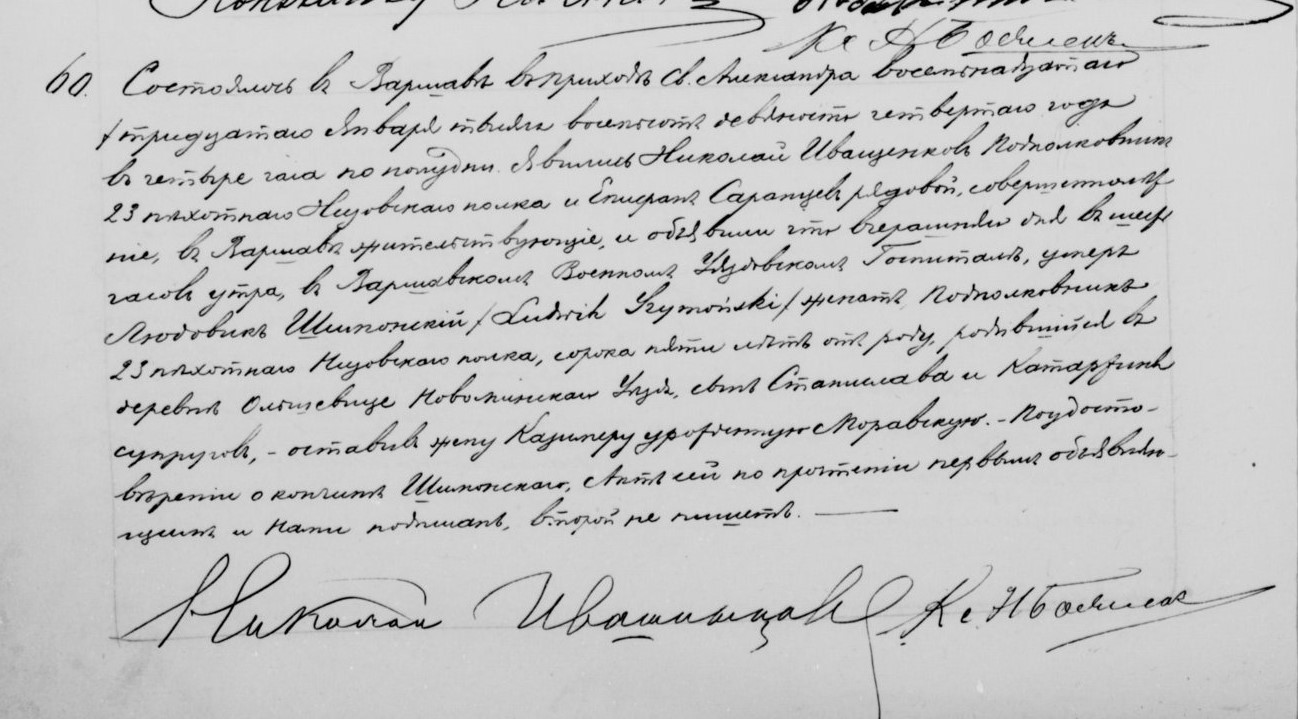 Кс Н Бобилевъ
60. Состоялось въ Варшавѣ въ приходѣ Св. Александра восемнадцатаго
/тридцатаго Января тысяча восемьсотъ девяносто четвертаго года
въ четыре часа по полудни. Явились Николай Иващенковъ Подполковникъ
23 пѣхотнаго Низовскаго полка и Епифанъ Саранцевъ рядовой, совершеннолѣт
ніе, въ Варшавѣ жительствующіе, и объявили что вчерашняго дня въ шесть
часовъ утра, въ Варшавскомъ Военномъ Уяздовскомъ Госпиталѣ, умеръ
Людовикъ Шимонскій /Ludwik Szymoński/ женатъ Подполковникъ
23 пѣхотнаго Низовскаго полка, сорока пяти лѣтъ отъ роду, родившійся въ
деревнѣ Ольшевице Новоминскаго Уѣзда, сынъ Станислава и Катаржины
супруговъ, - оставивъ жену Казимеру урожденную Моравскую. - По удосто-
вѣреніи о кончинѣ Шимонскаго, Актъ сей по прочтеніи первымъ объявляю-
щимъ и Нами подписанъ, второй не пишетъ.
Николай Кс. Н Бобилевъ